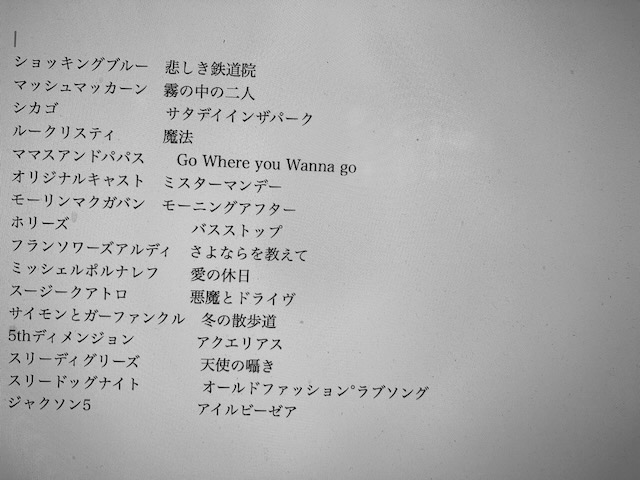 ショッキングブルー 悲しき鉄道院
マッシュマッカーン 霧の中の二人
シカゴ サタデイインザパーク
ルークリスティ 魔法
ママスアンドパパス Go Where you Wanna go
オリジナルキャスト ミスターマンデー
モーリンマクガバン モーニングアフター
ホリーズ バスストップ
フランソワーズアルディ さよならを教えて
ミッシェルポルナレフ 愛の休日
スージークアトロ 悪魔とドライヴ
サイモンとガーファンクル 冬の散歩道
5thディメンジョン アクエリアス
スリーディグリーズ 天使の囁き
スリードッグナイト オールドファッション°ラブソング
ジャクソン5 アイルビーゼア